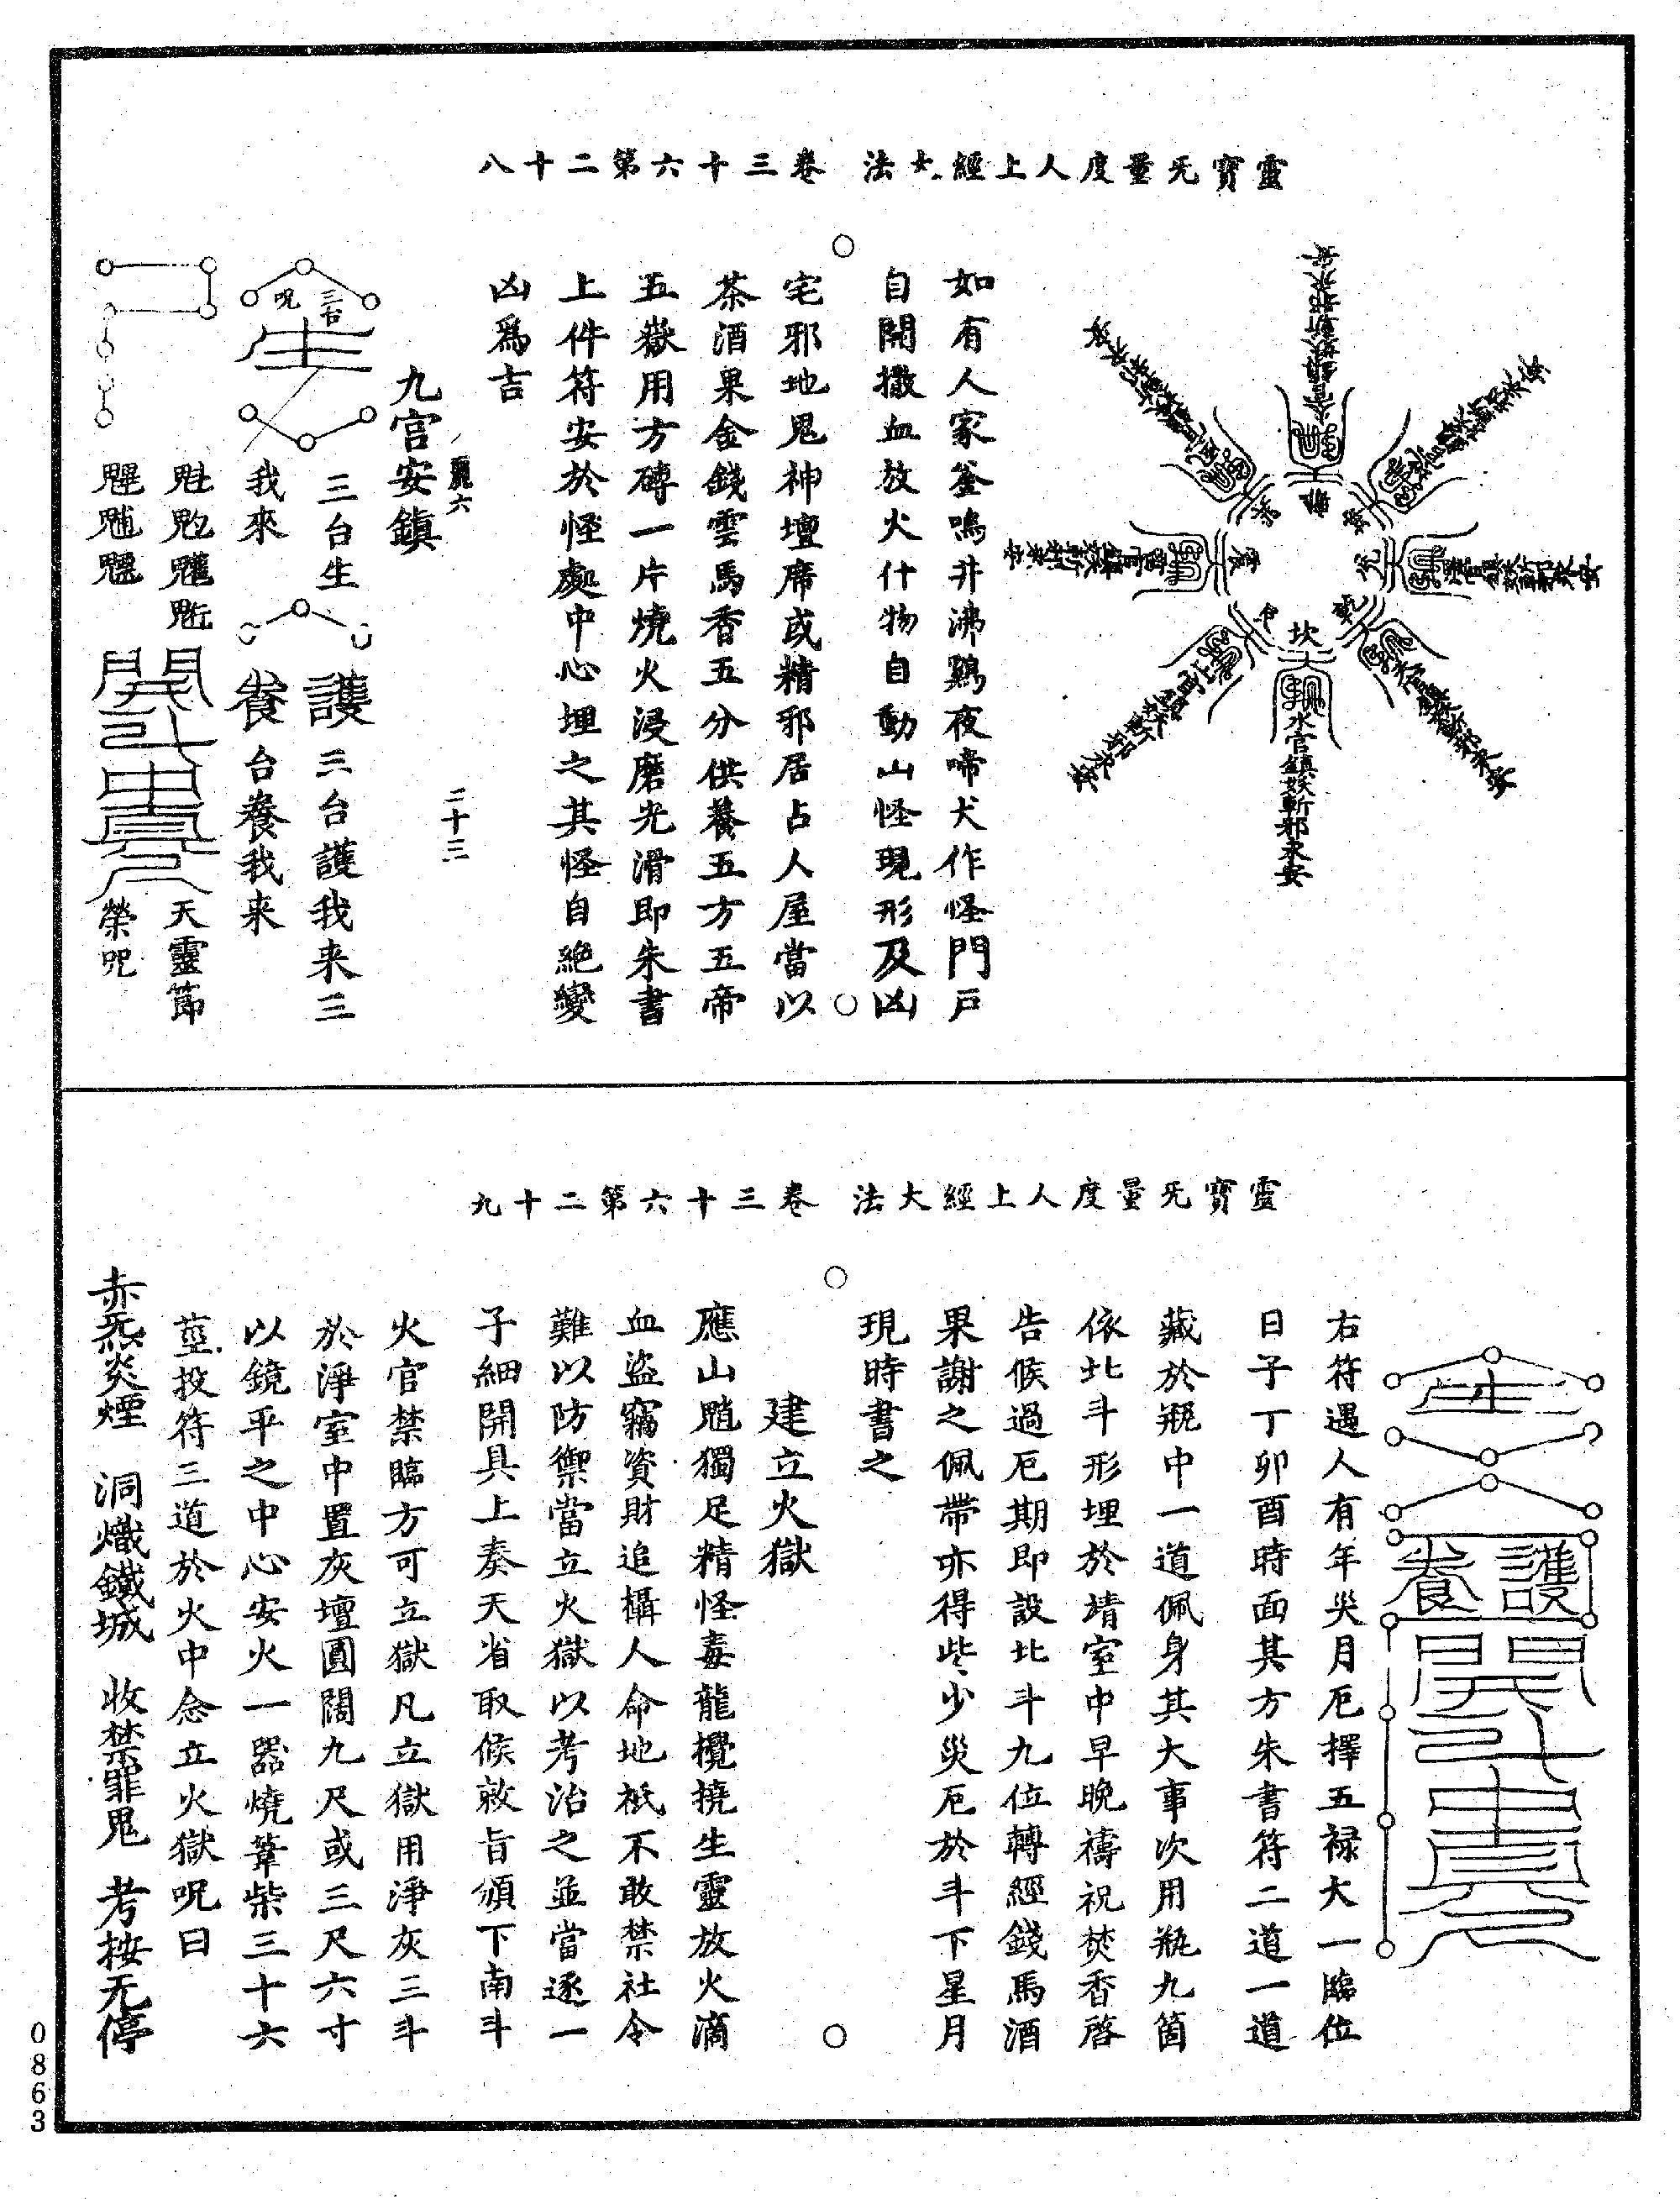 靈寶无量度人上經大法 卷三十六第二十八
坎
水官鎮妖斬邪永安
如有人家釜鳴井沸鷄夜啼犬作怪門戸
自開撒血放火什物自動山怪現形及凶
宅邪地鬼神壇席或精邪居占人屋當以
茶酒果金錢雲馬香五分供養五方五帝
五嶽用方磚一片燒火浸磨光滑即朱書
上件符安於怪處中心埋之其怪自絶變
凶爲吉
二十三
九官安鎮
三台
呪
生
三台生
我來
護
養
三台護我来三
台養我来
魁𩲃䰢魒
魓魌魕
開
天靈節
榮呪
靈寶无量度人上經大法 卷三十六第二十九
生
護
養
開
右符遇人有年災月厄擇五禄大一臨位
日子丁卯酉時面其方朱書符二道一道
藏於瓶中一道佩身其大事次用瓶九箇
依北斗形埋於靖室中早晚禱祝焚香啓
告候過厄期即設北斗九位轉經錢馬酒
果謝之佩帶亦得些少災厄於斗下星月
現時書之
建立火獄
應山魈獨足精怪毒龍攪撓生靈放火滴
血盜竊資財追攝人命地祇不敢禁社令
難以防禦當立火獄以考治之並當逐一
子細開具上奏天省取候敕旨頒下南斗
火官禁臨方可立獄凡立獄用淨灰三斗
於淨室中置灰壇圓闊九尺或三尺六寸
以鏡平之中心安火一器燒葦柴三十六
莖投符三道於火中念立火獄呪曰
赤炁炎煙 洞熾鐵城 收禁罪鬼 考按无停
0863